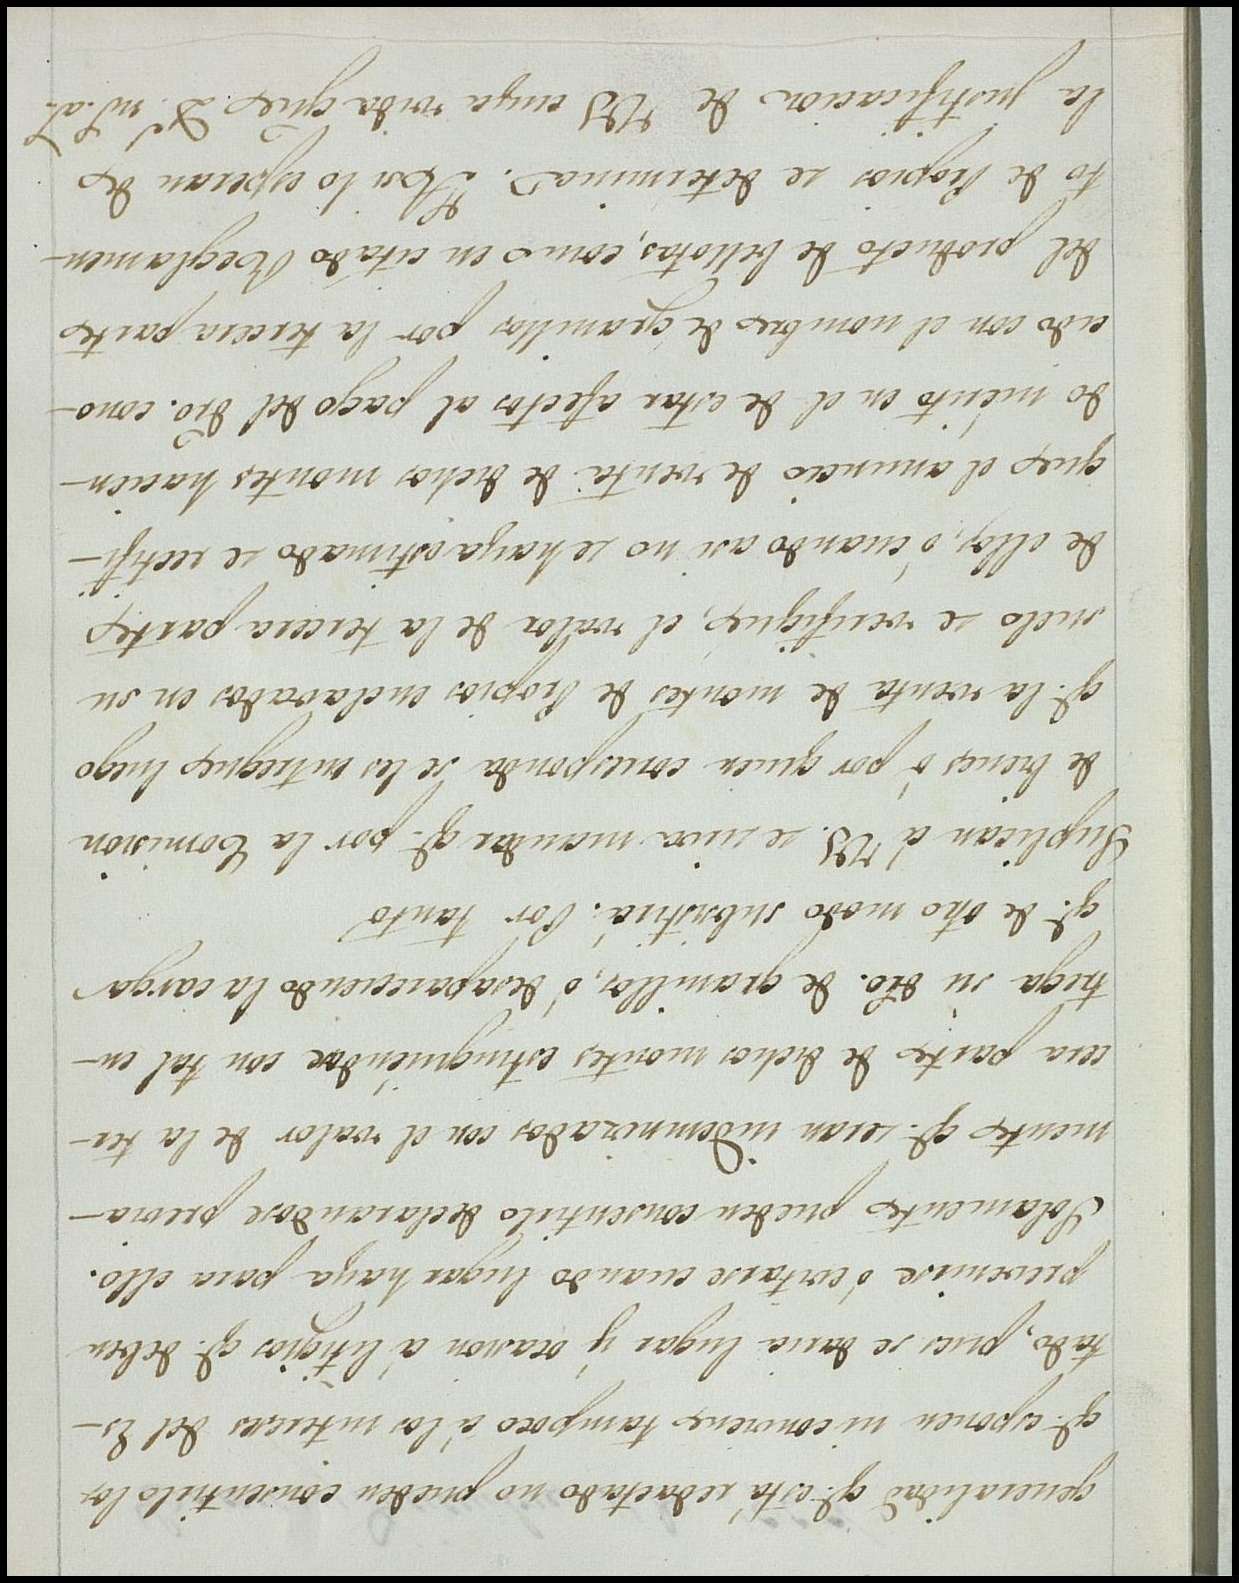 generalidad qe. está redactado no pueden consentirlo los
qe. esponen ni conviene tampoco á los intereses del Es-
tado, pues se daria lugar y ocasion á litigios qe. deben
prevenirse ó cortarse cuando lugar haya para ello.
Solamente pueden consentirlo declarandose previa-
mente qe. seran indemnizados con el valor de la ter-
cera parte de dichos montes estinguiéndose con tal en-
trega su dro. de granillos, ó desapareciendo la carga
qe. de otro modo subsistirá. Por tanto
Suplican á VS. se sirva mandar qe. por la Comision
de bienes ó por quien corresponda se les entregue luego
qe. la venta de montes de Propios enclavados en su
suelo se verifique, el valor de la tercera parte
de ellos, ó cuando asi no se haya estimado se rectifi-
que el anuncio de venta de dichos montes hacien-
do mérito en el de estar afectos al pago del dro. cono-
cido con el nombre de granillos por la tercera parte
del producto de bellotas, como en citado Reglamen-
to de Propios se determina. Asi lo esperan de
la justificacion de VS cuya vida gue. D. m.s a.s